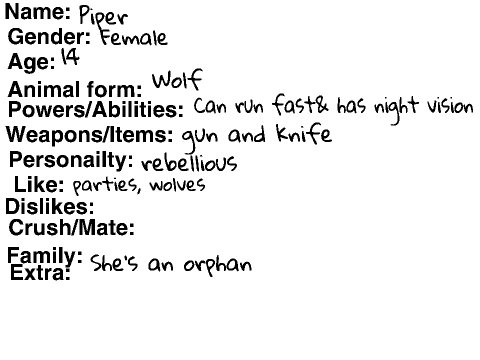 Name: Piper
Gender: Female
Age: 14
Animal form: Wolf
Powers/Abilities: Can run fast& has night vision
Weapons/Items: gun and knife
Personailty: rebellious
Like: parties, wolves
Dislikes:
Crush/Mate:
Family: She's an orphan
Extra: